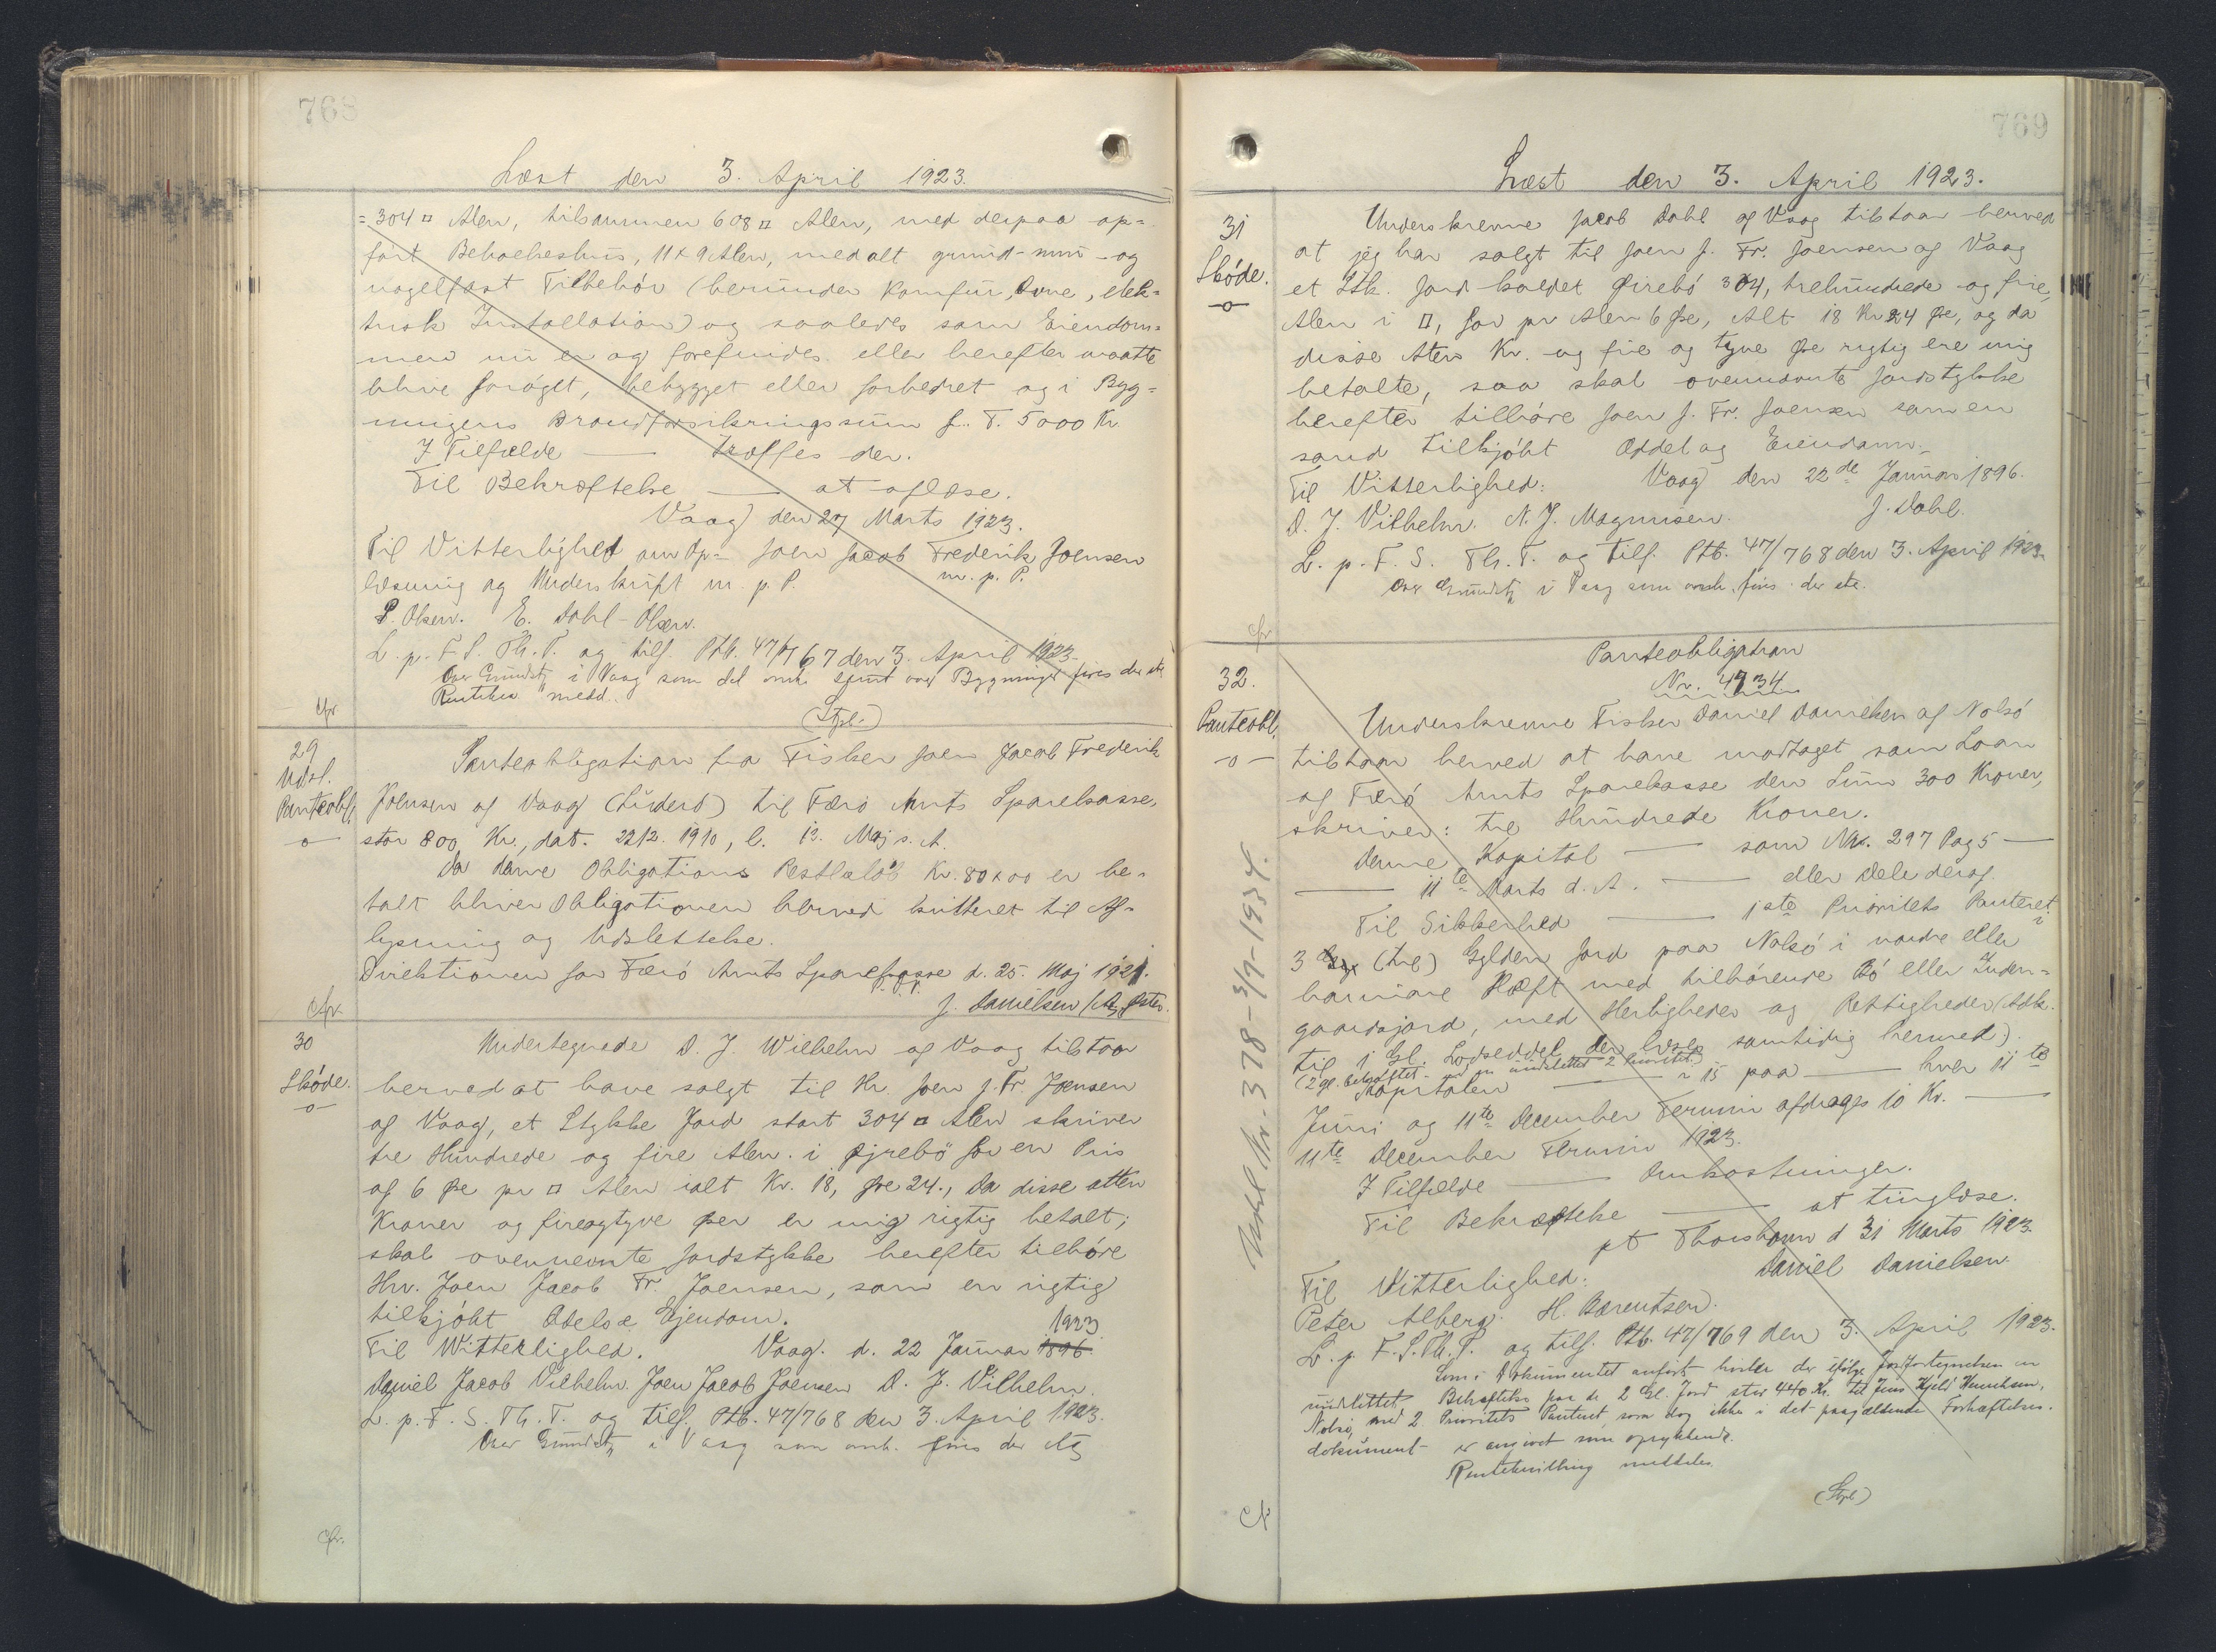 768
Læst den 3. April 1923.
= 304 □ Alen, tilsammen 608 □ Alen, med derpaa op=
ført Beboelseshus, 11 x 9 Alen, med alt grund- mur- og
nagelfast Tilbehør (herunder Komfur, Ovne, elek=
trisk Installation) og saaledes som Eiendom=
men nu er og forefindes eller herefter maatte
blive forøget, bebygget eller forbedret og i Byg=
ningens Brandforsikringssum p. T. 5000 Kr.
I Tilfælde — træffes der.
Til Bekræftelse — at aflæse.
Vaag den 27 Marts 1923.
Til Vitterlighed om Op= Joen Jacob Frederik Joensen
læsning og Underskrift m. p. P. m. p. P.
P. Olsen. E. Dahl-Olsen.
L. p. F. S. Th. T. og tilf. Ptb. 47/767 den 3. April 1923.
Over Grundst. i Vaag som del omh. samt over Bygninger føres der ite
Rentekv. medd.
(Stpl.)
Cfr
29
Udsl.
Panteobl.
-o-
Panteobligation fra Fisker Joen Jacob Frederik
Joensen af Vaag (Lüders) til Færø Amts Sparekasse,
stor 800 Kr., dat. 22/2. 1910, l. 13. Maj s. A.
Da denne Obligations Restbeløb Kr. 80 x 00 er be-
talt bliver Obligationen herved kvitteret til Af-
lysning og Udslettelse.
Direktionen for Færø Amts Sparekasse d. 25. Maj 1921.
J. Danielsen / A. Öster.
Cfr.
30
Skøde.
-o-
Undertegnede D. J. Wilhelm af Vaag tilstaar
herved at have solgt til Hr. Joen J. Fr Joensen
af Vaag, et Stykke Jord stort 304 □ Alen skriver
tre Hundrede og fire Alen. i Øjrebö for en Pris
af 6 Øre pr □ Alen ialt Kr. 18, Øre 24., Da disse atten
Kroner og fireogtyve Ører er mig rigtig betalt;
skal ovennevnte Jordstykke herefter tilhøre
Hrr. Joen Jacob Fr. Joensen, som en rigtig
tilkjøbt Odels e Ejendom.
1923
Til Witterlighed. Vaag. d. 22 Januar 1896.
Daniel Jacob Vilhelm. Joen Jacob Joensen D. J. Vilhelm.
L. p. F. S. Th. T. og tilf. Ptb. 47/768 den 3. April 1923.
Over Grundst. i Vaag som omh. føres der ite
Cfr.
769
Læst den 3. April 1923.
31
Skøde.
-o-
Underskrevne Jacob Dahl af Vaag tilstaar herved
at jeg har solgt til Joen J. Fr. Joensen af Vaag
et Stk. Jord kaldet Øirebö 304, trehundrede og fire,
Alen i □, for pr Alen 6 Øre, Alt 18 Kr 24 Øre, og da
disse Aten Kr. og fire og tyve Øre rigtig ere mig
betalte, saa skal ovennævnte Jordstykke
herefter tilhøre Joen J. Fr. Joensen som en
sand tilkjøbt Oddel og Eiendom.
Til Vitterlighed: Vaag den 22de Januar 1896.
D. J. Vilhelm. N. J. Magnusen. J. Dahl.
L. p. F. S. Th. T. og tilf. Ptb. 47/768 den 3. April 1923.
Over Grundst. i Vaag som omh. føres der ite.
Cfr
32.
Panteobl.
-o-
Panteobligation
Nr. 4934
Underskrevne Fisker Daniel Danielsen af Nolsö
tilstaar herved at have modtaget som Laan
af Færö Amts Sparekasse den Sum 300 Kroner,
skriver: tre Hundrede Kroner.
Denne Kapital — som Nr. 297 Pag 5 —
— 11te Marts d. A. — eller Dele deraf.
Til Sikkerhed — 1ste Prioritets Panteret i
3 (tre) Gylden Jord paa Nolsö i nordre eller
barniare Hæft med tilhørende Bö eller Inden-
gaardsjord, med Herligheder og Rettigheder (Adk.
til 1 Gl. Lodseddel der læses samtidig hermed).
(2 gl. behæftet med en uudslettet 2 Prioritet)
Kapitalen — i 15 paa — hver 11te
Juni og 11te December Termin afdrages 10 Kr. —
11te December Termin 1923.
I Tilfælde — Omkostninger.
Til Bekræftelse — at tinglæse.
pt Thorshavn d 31 Marts 1923
Til Vitterlighed: Daniel Danielsen.
Peter Alberg. H. Berentsen.
L. p. F. S. Th. T. og tilf. Ptb. 47/769 den 3. April 1923.
Som i Dokumentet anført hviler der ifølge Jordfortegnelsen en
uudslettet Behæftelse paa de 2 Gl. Jord stor 440 Kr. til Jens Kjeld Henriksen,
Nolsö, med 2. Prioritets Panteret, som dog ikke i det paagældende Forhæftelses-
dokument er angivet som oprykkende.
Rentekvittring meddeles.
(Stpl)
Cfr
Udsl. Nr. 378-3/9-1934.